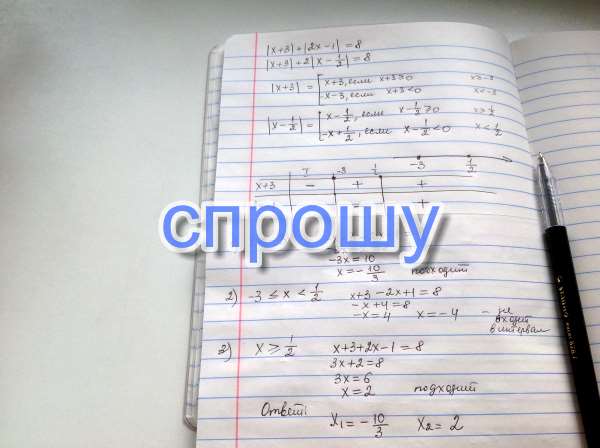 |x+3|+|2x-1|=8
|x+3|+2|x-1/2|=8
|x+3| = [ x+3, если x+3≥0 x≥-3
-x-3, если x+3<0 x<-3
|x-1/2| = [ x-1/2, если x-1/2≥0 x≥1/2
-x+1/2, если x-1/2<0 x<1/2
-3 1/2
-3 1/2
x+3 - + +
- +
спрошу
-3x=10
x=-10/3 подходит
2) -3≤x<1/2 x+3-2x+1=8
-x+4=8
-x=4 x=-4 - не входит в интервал
3) x≥1/2 x+3+2x-1=8
3x+2=8
3x=6
x=2 подходит
Ответ: x₁=-10/3 x₂=2